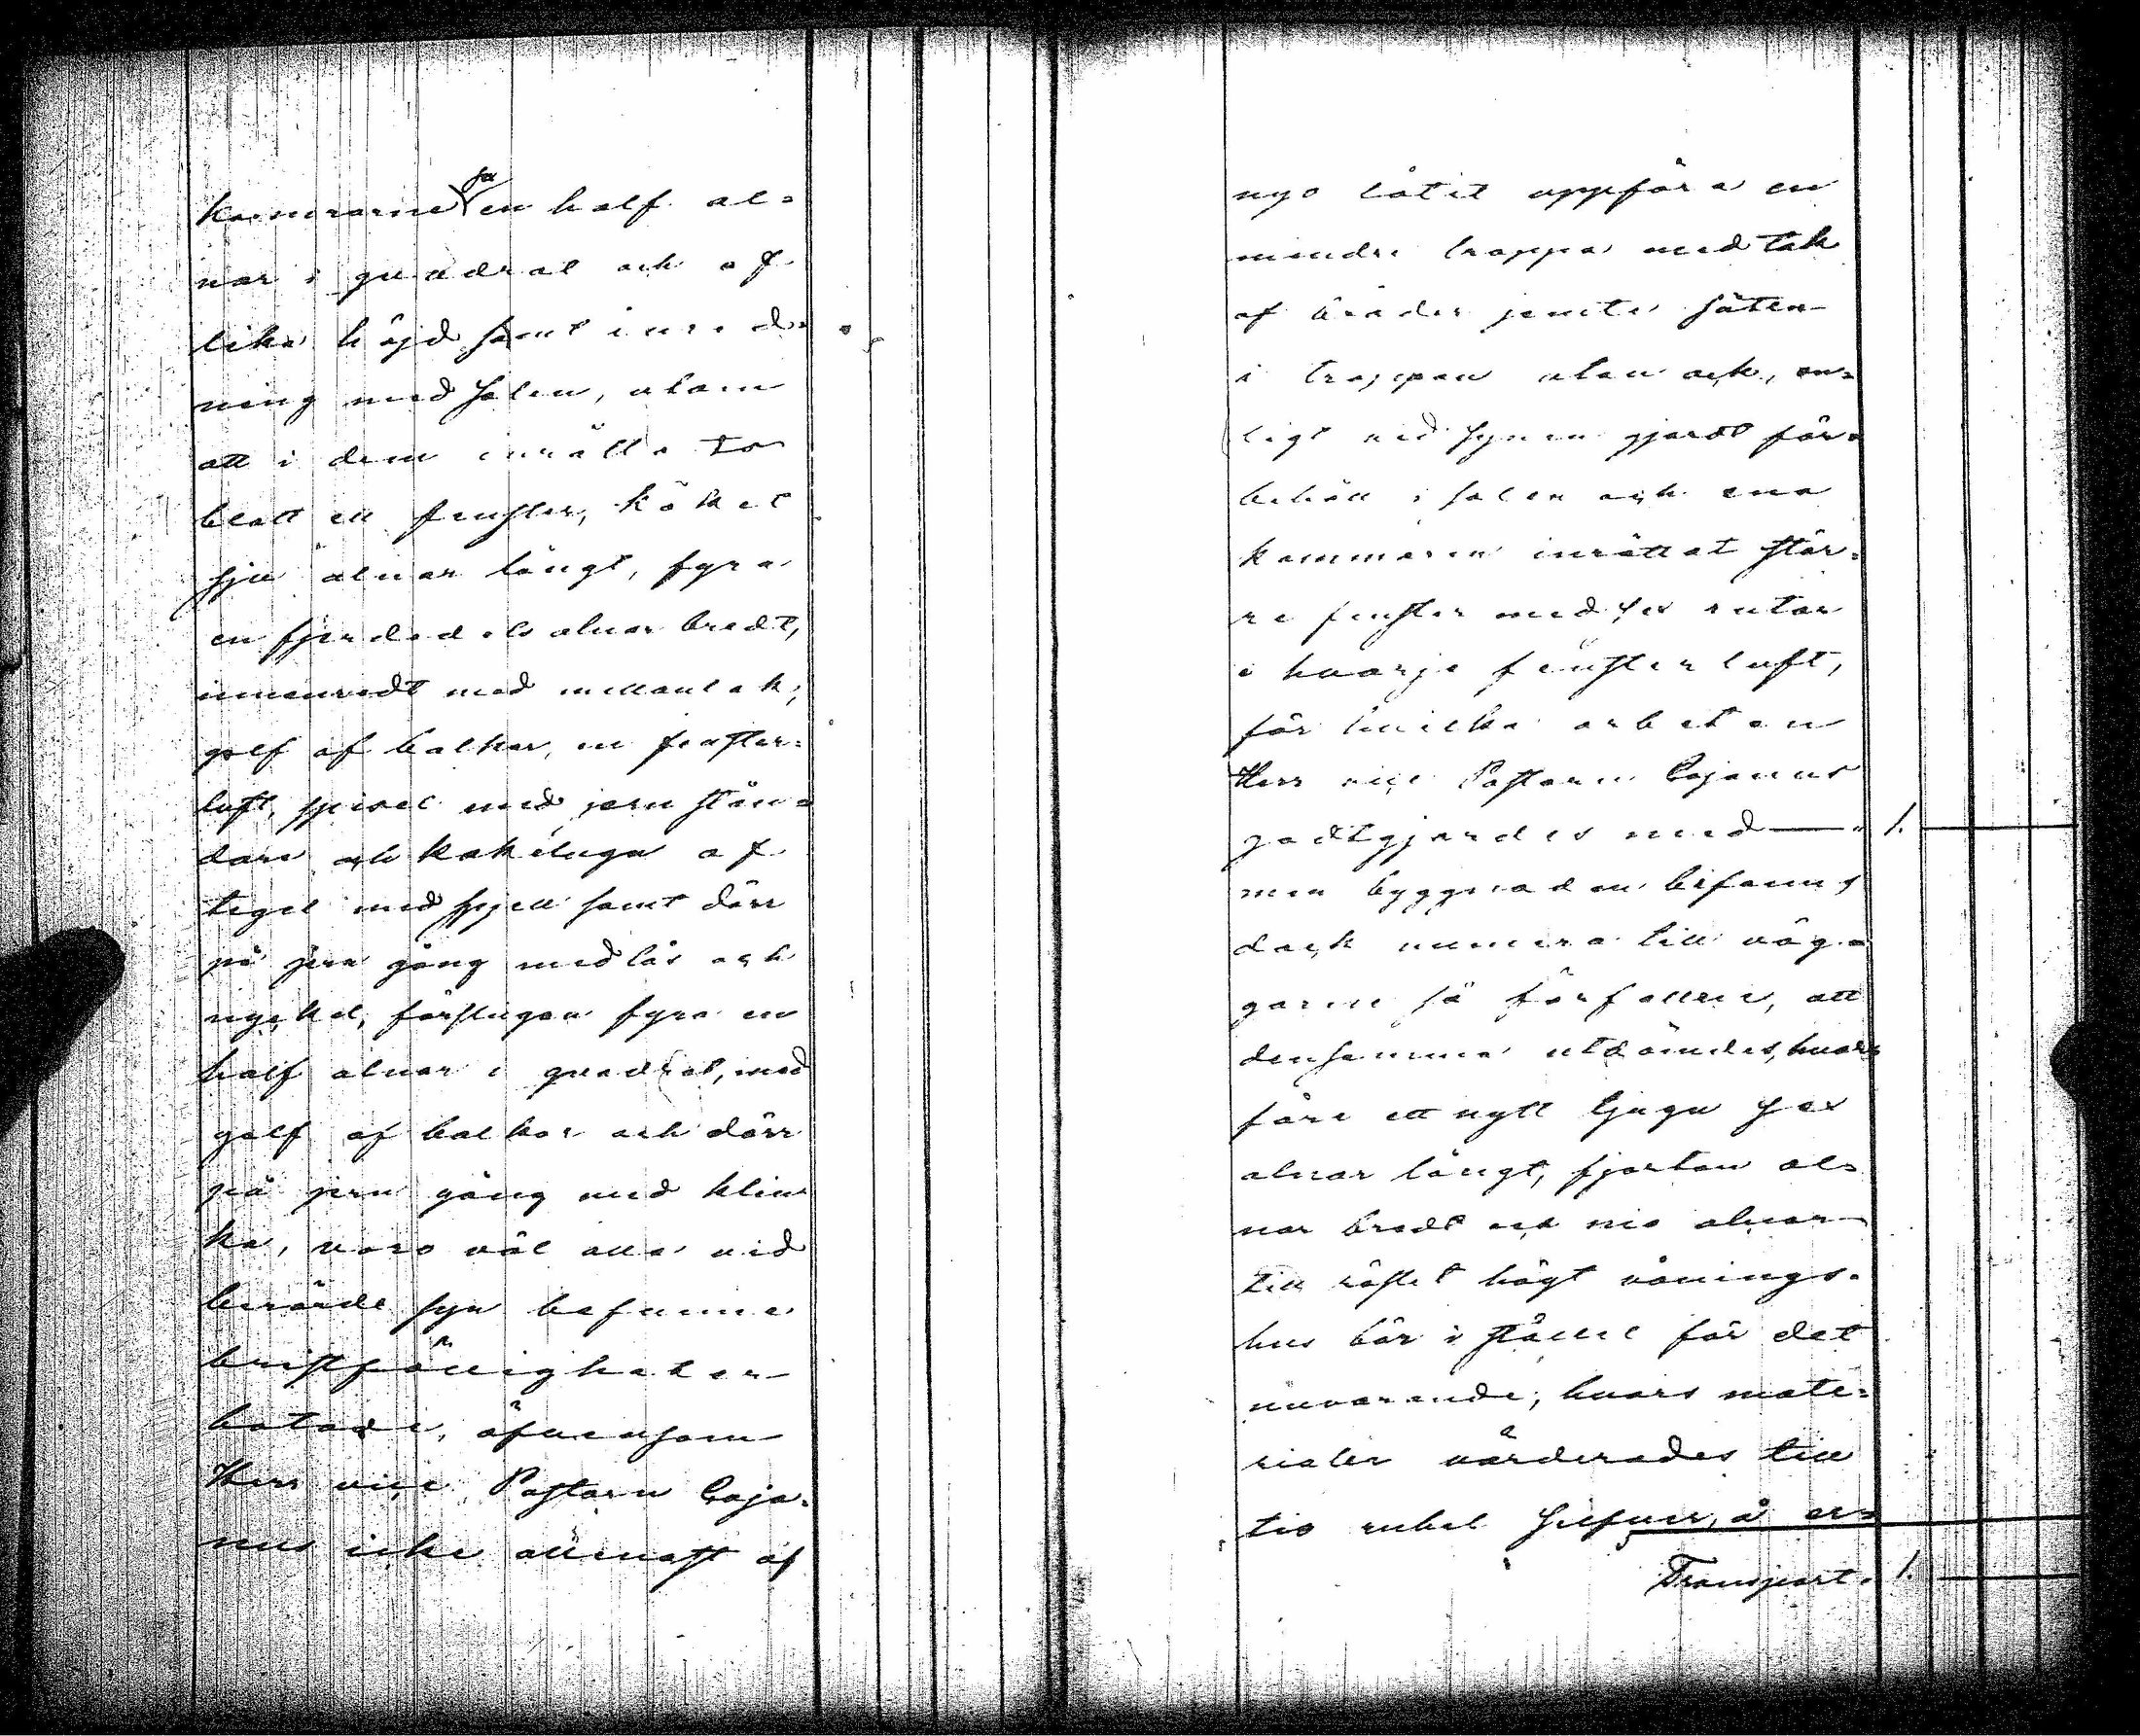 kamrarne sju en half al=
nar i quadrat och af
lika höjd samt inred=
ning med salen, utom
att i dem inrätta to
blott ett fenster, köket
sju alnar långt, fyra
en fjerdedels alnar bredt,
innanredt med mellantak;
golf af balkar, en fenster=
luft, spisel med jern stän=
dare och kakelugn af
tegel med spjell samt dörr
på jern gång med lås och
nyckel, förstugan fyra en
half alnar i quadrat, med
golf af balkar och dörr
på jern gång med klin
ka, voro väl alla vid
berörde syn befunna
bristfälligheter
botade, äfvensom
Herr vice Pastorn Caja=
nus icke allenast af
nyo låtit uppföra en
mindre trappa med tak
af bräder jemte säten
i trappan utan ock, en=
ligt vid synen gjordt för=
behåll i salen och ena
kammaren inrättat stör=
re fenster med sex rutor
i hvarje fenster luft,
för hvilka arbeten
Herr vice Pastorn Cajanus
godtgjordes med — " 1. —
men byggnaden befanns
dock numera till väg=
garne så förfallen, att
densamma utdömdes, hvar=
före ett nytt tjugu sex
alnar långt, fjorton al=
nar bredt och nio alnar
till röstet högt vånings=
hus bör i stället för det
nuvarande, hvars mate=
rialer värderades till
tio rubel silfver, å er=
Transport. 1. —